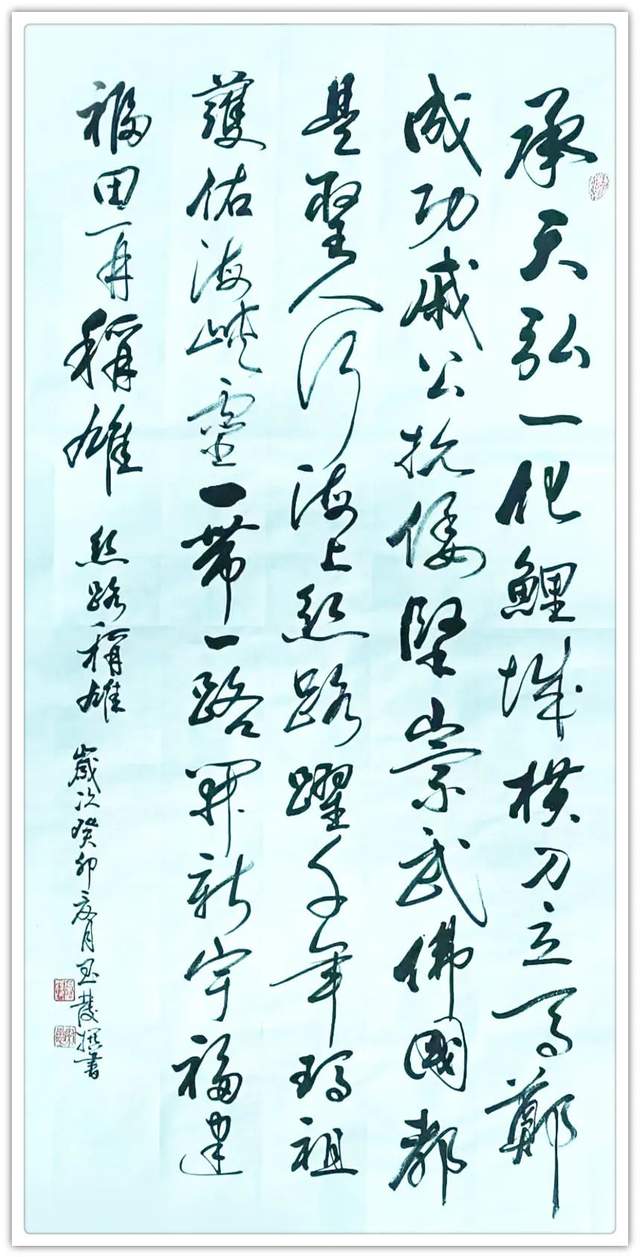 承天弘一化鯉城橫刀立馬鄭
成功戚公抗倭堅崇武佛國都
是聖人行海上絲路躍千年瑪祖
護佑海峽靈一帶一路開新宇福建
福田一再稱雄 絲路稱雄 歲次癸卯夏月玉發撰書